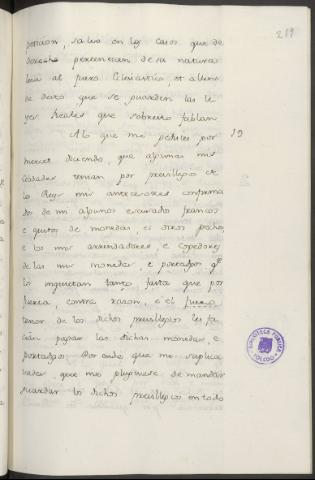 219
peticion, salvo en los casos que de
derecho pertenescan de su natura
leza al fuero Eclesiastico, et allende
de desto que se guarden las le
yes Reales que sobresto fablan
19
A lo que me pedistes por
merced diciendo, que algunas mis
Cibdades tenian por previllegio de
los Reyes mis antecesores confirma
do de mi algunos escusados francos
e quitos de monedas, e otros pechos,
e los mis arrendadores, e cogedores
de las mis monedas, e portadgos q.
los inquietan tanto, fasta que por
fuerza, contra razon, e el
tenor de los dichos previllegios les fa
cian pagar las dichas monedas, e
portadgos. Por ende que me suplica
bades que me pluguiese de mandar
guardar los dichos previllegios en todo
BIBLIOTECA PUBLICA
TOLEDO